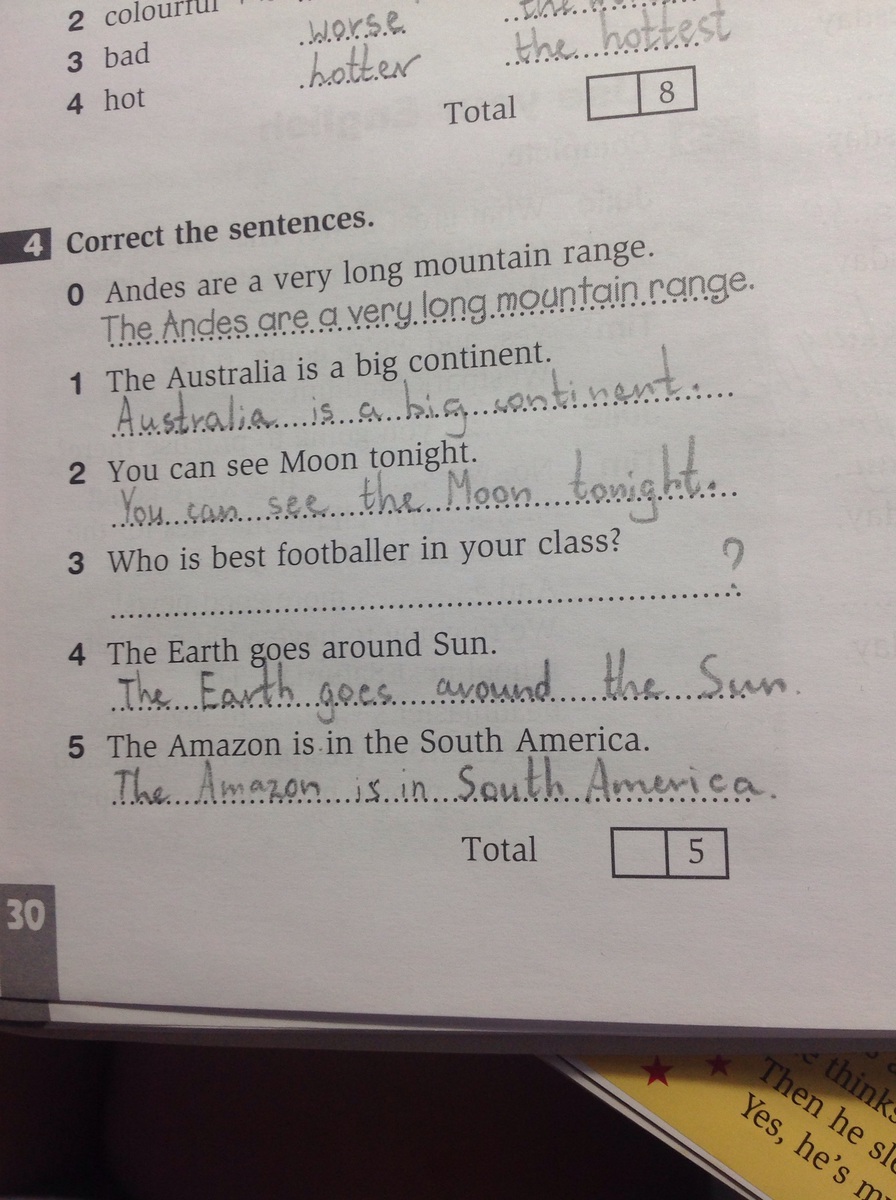 2 colourful
3 bad worse the
4 hot hotter the hottest
Total 8
4 Correct the sentences.
0 Andes are a very long mountain range.
The Andes are a very long mountain range.
1 The Australia is a big continent.
Australia is a big continent.
2 You can see Moon tonight.
You can see the Moon tonight.
3 Who is best footballer in your class?
?
4 The Earth goes around Sun.
The Earth goes around the Sun.
5 The Amazon is in the South America.
The Amazon is in South America.
Total 5
30
thinks
Then he
Yes, he's